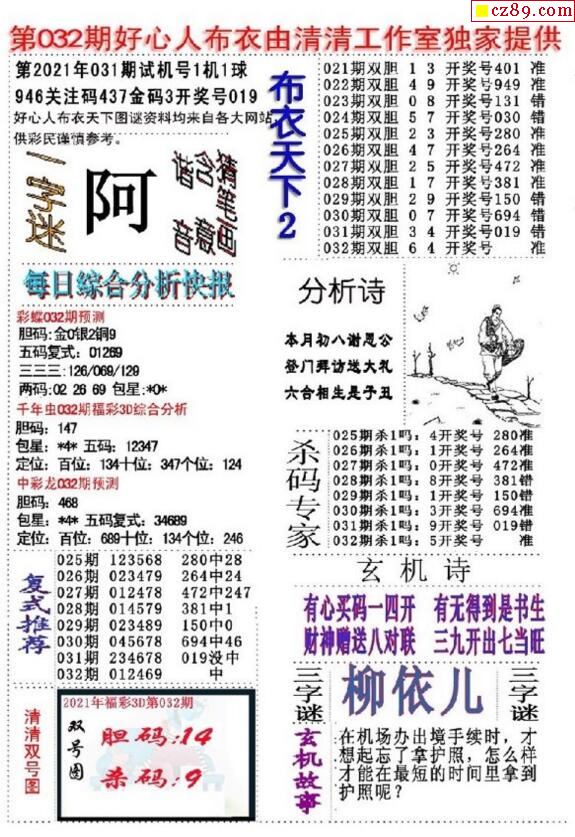 cz89.com
第032期好心人布衣由清清工作室独家提供
第2021年031期试机号1机1球
946关注码437金码3开奖号019
好心人布衣天下图谜资料均来自各大网站,
供彩民谨慎参考。
一字迷
阿
猜笔画
含意
谐音
每日综合分析快报
彩蝶032期预测
胆码:金0银2铜9
五码复式:01269
三三三:126/069/129
两码:02 26 69 包星:*0*
千年虫032期福彩3D综合分析
胆码:147
包星:*4* 五码:12347
定位:百位:134十位:347个位:124
中彩龙032期预测
胆码:468
包星:*4* 五码复式:34689
定位:百位:689十位:134个位:246
复式推荐
025期 123568 280中28
026期 023479 264中24
027期 012478 472中247
028期 014579 381中1
029期 023489 150中0
030期 045678 694中46
031期 234678 019没中
032期 012469 中
清清双号图
2021年福彩3D第032期
双号图
胆码:14
杀码:9
布衣天下2
021期双胆 1 3 开奖号401 准
022期双胆 4 9 开奖号949 准
023期双胆 0 8 开奖号131 错
024期双胆 5 7 开奖号030 错
025期双胆 2 3 开奖号280 准
026期双胆 4 7 开奖号264 准
027期双胆 2 5 开奖号472 准
028期双胆 1 7 开奖号381 准
029期双胆 2 9 开奖号150 错
030期双胆 0 7 开奖号694 错
031期双胆 3 4 开奖号019 错
032期双胆 6 4 开奖号 准
分析诗
本月初八谢恩公
登门拜访送大礼
六合相生是子丑
杀码专家
025期杀1吗:4开奖号 280准
026期杀1吗:1开奖号 264准
027期杀1吗:0开奖号 472准
028期杀1吗:8开奖号 381错
029期杀1吗:1开奖号 150错
030期杀1吗:3开奖号 694准
031期杀1吗:9开奖号 019错
032期杀1吗:5开奖号 准
玄机诗
有心买码一四开 有无得到是书生
财神赠送八对联 三九开出七当旺
三字谜
柳依儿
三字谜
玄机故事
在机场办出境手续时,才
想起忘了拿护照,怎么样
才能在最短的时间里拿到
护照呢?